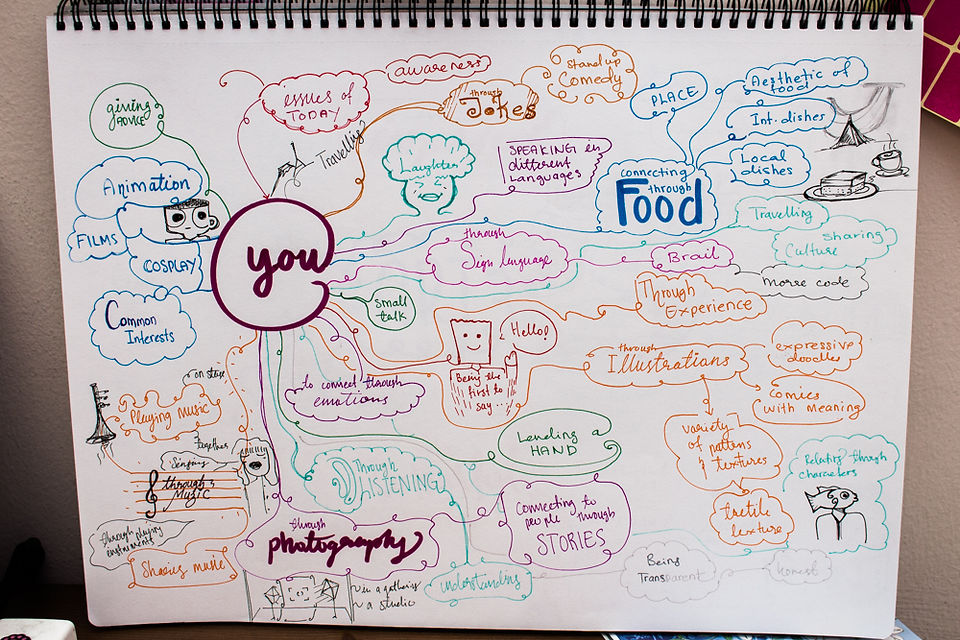 giving
ADVICE
issues of
TODAY
awareness
through
Jokes
stand up
Comedy
PLACE
Aesthetic of
food
Int. dishes
Local
dishes
Travelling
Animation
FILMS
COSPLAY
Common
Interests
you
Laughter
SPEAKING in
different
Languages
connecting
through
Food
through
Sign language
Brail
Travelling
sharing
Culture
morse code
Small
talk
Hello!
Being the
first to
say...
Through
Experience
through
Illustrations
expressive
doodles
Comics
with meaning
variety
of pattens
& textures
Relating through
characters
to connect through
emotions
Lending a
HAND
Through
LISTENING
Connecting to
people through
STORIES
through
photography
in a gathering
a studio
understanding
Being
Transparent
honest
on stage
Playing music
together
Singing
through
MUSIC
through playing
instruments
Sharing music